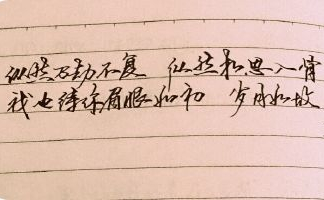 纵然万劫不复 纵然相思入骨
我也待你眉眼如初 岁月如故